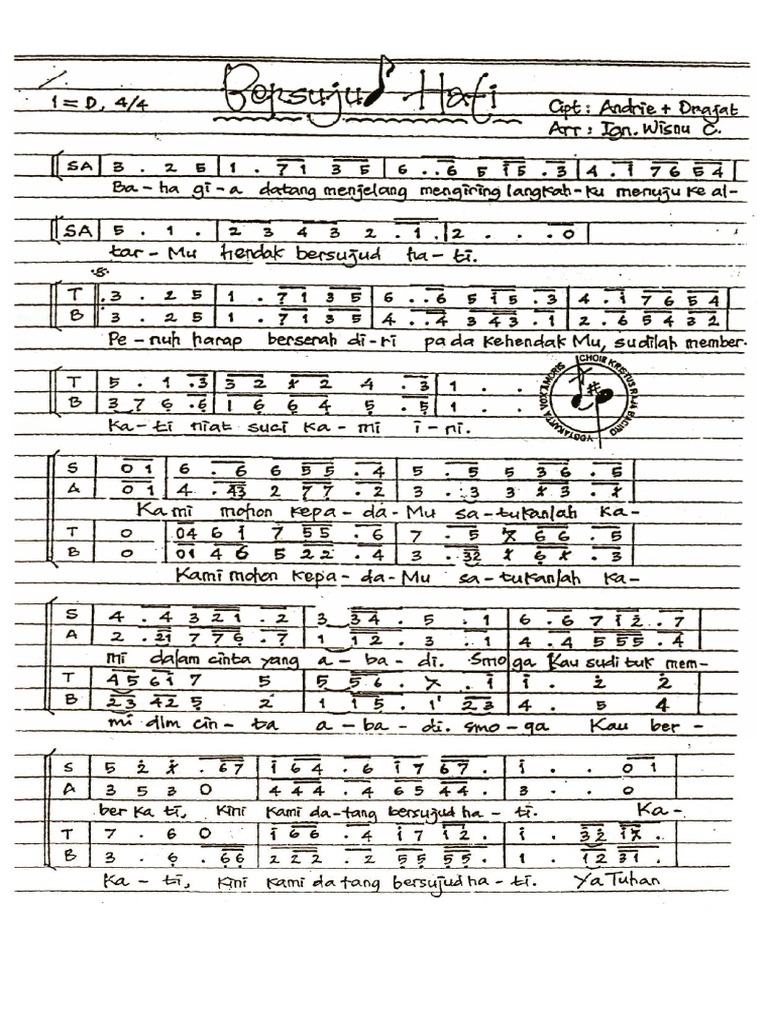 Bersujud Hati
1 = D, 4/4
Cipt : Andrie + Drajat
Arr : Ign. Wisnu C.
SA 3 . 2 5 | 1 . 71 3 5 | 6 . . 6 5 i5 . 3 | 4 . i 7 6 5 4
Ba - ha gi - a datang menjelang mengiring langkah - ku menuju ke al -
SA 5 . 1 . | 2 3 4 3 2 . 1 . | 2 . . . 0
tar - Mu hendak bersujud ha - ti.
T 3 . 2 5 | 1 . 7 1 3 5 | 6 . . 6 5 i 5 . 3 | 4 . i 7 6 5 4
B 3 . 2 5 | 1 . 7 1 3 5 | 4 . . 4 3 4 3 . 1 | 2 . 6 5 4 3 2
Pe - nuh harap berserah di - ri pada kehendak Mu, sudilah member.
T 5 . 1 . 3 | 3 2 2 4 . 3 | 1 . .
B 3 7 6 . 6 | 1 6 6 4 5 . 5 | 1 . .
Ka - ti niat suci ka - mi i - ni.
CHOIR KRISTUS RAJA BACIRO YOGYAKARTA VOX AMORIS
S 0 1 | 6 . 6 6 5 5 . 4 | 5 . 5 5 3 6 . 5
A 0 1 | 4 . 43 2 7 7 . 2 | 3 . 3 3 3 .
Kami mohon kepa - da - Mu sa - tukanlah Ka -
T 0 | 04 6 i 7 5 5 . 6 | 7 . 5 6 6 . 5
B 0 | 01 4 6 5 2 2 . 4 | 3 . 32 6 . 3
Kami mohon kepa - da - Mu sa - tukanlah ka -
S 4 . 4 3 2 1 . 2 | 3 3 4 . 5 . 1 | 6 . 6 7 i 2 . 7
A 2 . 21 7 7 6 . 7 | 1 1 2 . 3 . 1 | 4 . 4 5 5 5 . 4
mi dalam cinta yang a - ba - di. Smoga Kau sudi tuk mem -
T 4 5 6 i 7 5 | 5 5 6 . . i | i . 2 2
B 2 3 4 2 5 2 | 1 1 5 . 1 2 3 | 4 . 5 4
mi dlm cin - ta a - ba - di. smo - ga Kau ber -
S 5 2 . 6 7 | i 6 4 . 6 i 7 6 7 . | i . . 0 1
A 3 5 3 0 | 4 4 4 . 4 6 5 4 4 . | 3 . . 0
ber ka ti, Kini Kami da - tang bersujud ha - ti. Ka -
T 7 . 6 0 | i 6 6 . 4 i 7 i 2 . | i . 3 2 i .
B 3 . 6 . 6 6 | 2 2 2 . 2 5 5 5 5 . | 1 . 1 2 3 1 .
Ka - ti, kini kami da tang bersujud ha - ti. Ya Tuhan